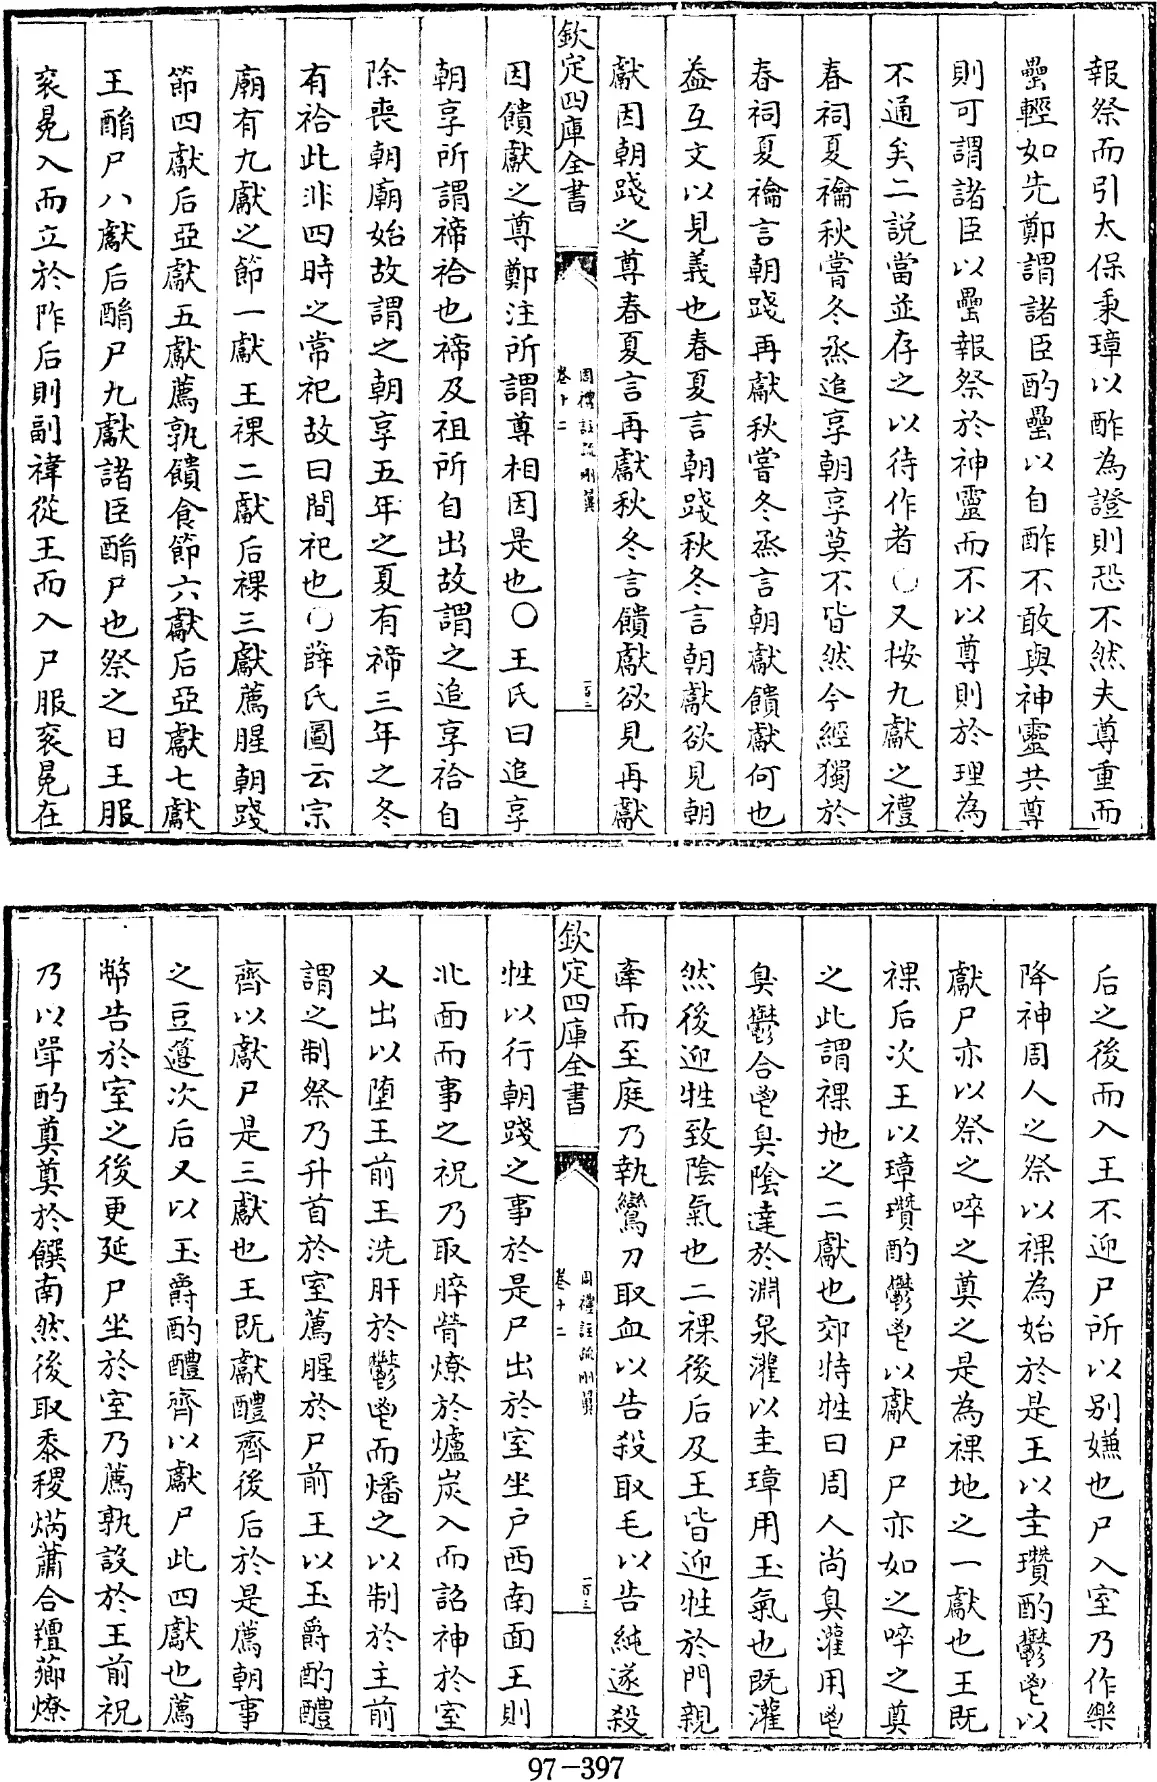 報祭而引太保秉璋以酢為證則恐不然夫尊重而
罍輕如先鄭謂諸臣酌罍以自酢不敢與神靈共尊
則可謂諸臣以罍報祭於神靈而不以尊則於理為
不通矣二説當並存之以待作者○又按九獻之禮
春祠夏禴秋嘗冬烝追享朝享莫不皆然今經獨於
春祠夏禴言朝踐再獻秋嘗冬烝言朝獻饋獻何也
葢互文以見義也春夏言朝踐秋冬言朝獻欲見朝
獻因朝踐之尊春夏言再獻秋冬言饋獻欲見再獻
欽定四庫全書
周禮註疏刪翼
卷十二
一百二
因饋獻之尊鄭注所謂尊相因是也○王氏曰追享
朝享所謂禘祫也禘及祖所自出故謂之追享祫自
除喪朝廟始故謂之朝享五年之夏有禘三年之冬
有祫此非四時之常祀故曰間祀也○薛氏圖云宗
廟有九獻之節一獻王祼二獻后祼三獻薦腥朝踐
節四獻后亞獻五獻薦孰饋食節六獻后亞獻七獻
王酳尸八獻后酳尸九獻諸臣酳尸也祭之日王服
衮冕入而立於阼后則副褘從王而入尸服衮冕在
后之後而入王不迎尸所以别嫌也尸入室乃作樂
降神周人之祭以祼為始於是王以圭瓚酌鬱鬯以
獻尸亦以祭之啐之奠之是為祼地之一獻也王既
祼后次王以璋瓚酌鬱鬯以獻尸尸亦如之啐之奠
之此謂祼地之二獻也郊特牲曰周人尚臭灌用鬯
臭鬱合鬯臭陰達於淵泉灌以圭璋用玉氣也既灌
然後迎牲致陰氣也二祼後后及王皆迎牲於門親
牽而至庭乃執鸞刀取血以告殺取毛以告純遂殺
欽定四庫全書
周禮註疏刪翼
卷十二
一百三
牲以行朝踐之事於是尸出於室坐户西南面王則
北面而事之祝乃取膟膋燎於爐炭入而詔神於室
又出以墮王前王洗肝於鬱鬯而燔之以制於主前
謂之制祭乃升首於室薦腥於尸前王以玉爵酌醴
齊以獻尸是三獻也王既獻醴齊後后於是薦朝事
之豆籩次后又以玉爵酌醴齊以獻尸此四獻也薦
幣告於室之後更延尸坐於室乃薦孰設於王前祝
乃以斝酌奠奠於饌南然後取黍稷焫蕭合羶薌燎
97-397